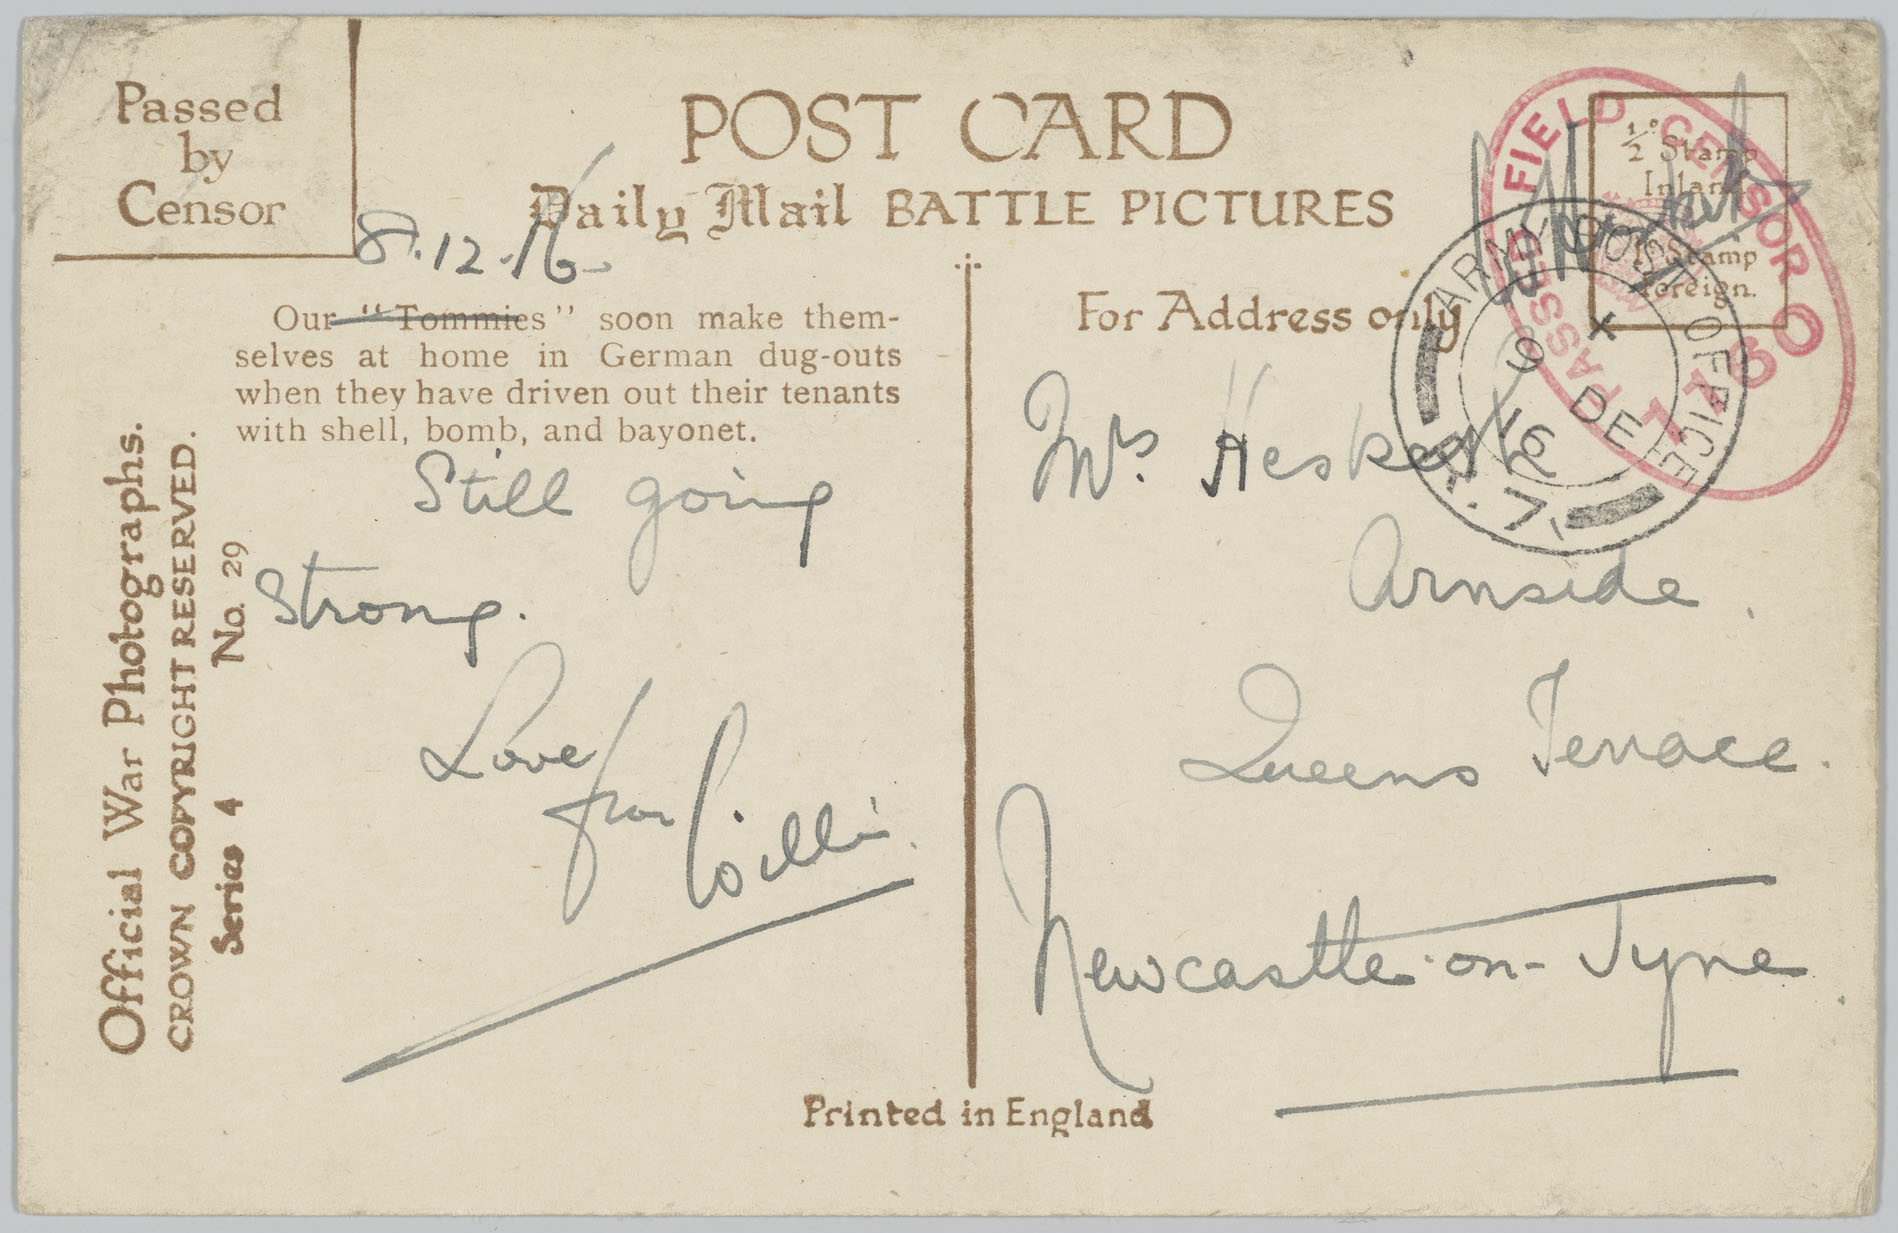 Passed
by
Censor
POST CARD
Daily Mail BATTLE PICTURES
8.12.16
Our "Tommies" soon make them-
selves at home in German dug-outs
when they have driven out their tenants
with shell, bomb, and bayonet.
Still going
Strong.
Love
from
Willie.
Official War Photographs.
CROWN COPYRIGHT RESERVED.
Series 4 No. 29
For Address only
½ᵈ Stamp
Inland
1ᵈ Stamp
Foreign.
PASSED FIELD CENSOR
ARMY POST OFFICE
X
9 DE
16
R.7.
Mrs. Hesketh
Arnside.
Queens Terrace.
Newcastle-on-Tyne.
Printed in England